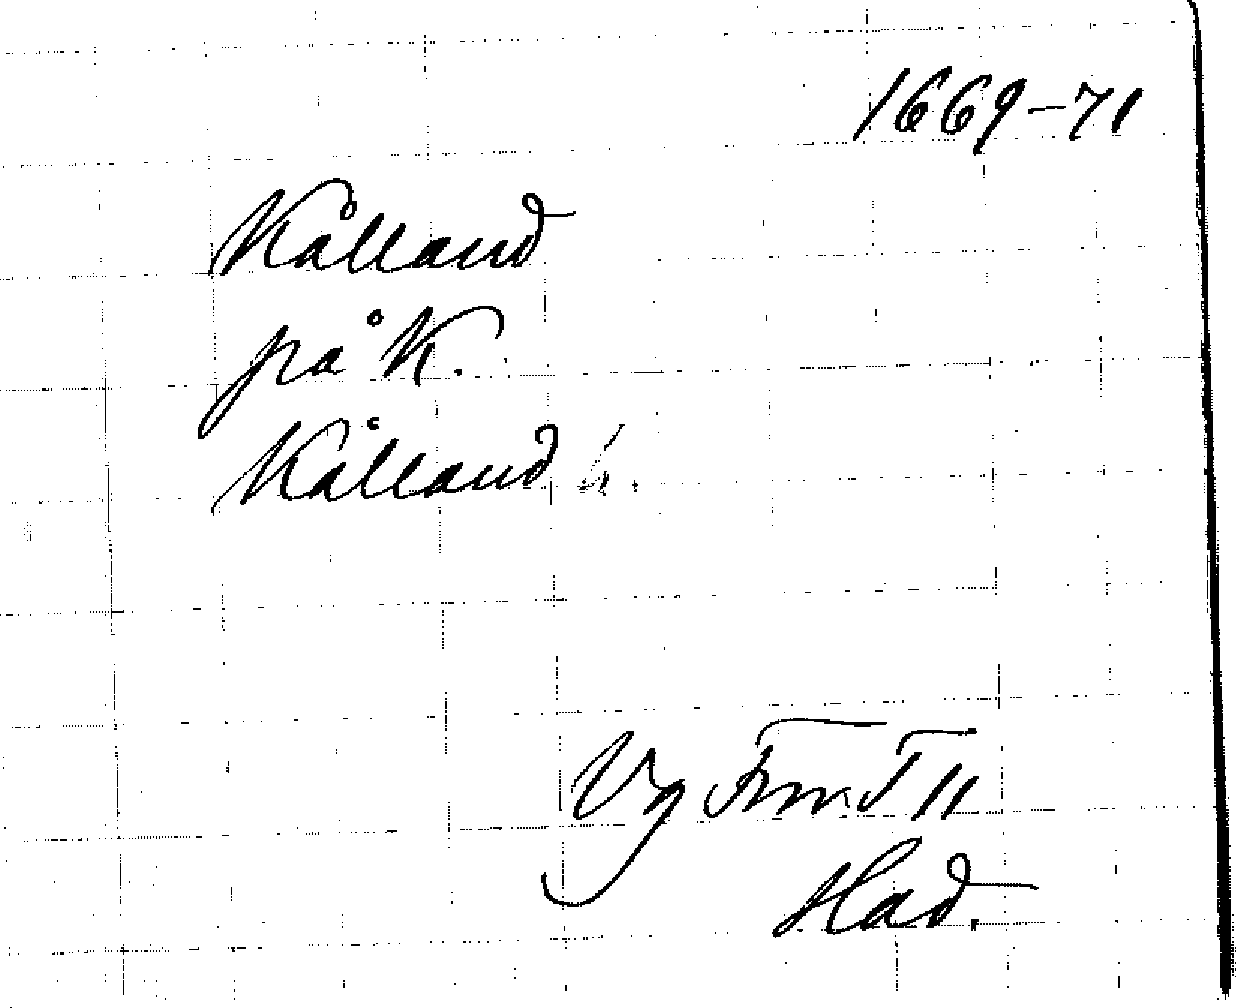 1669-71
Kålland
på K.
Kålland h.
Vg Fmt 11
Had.